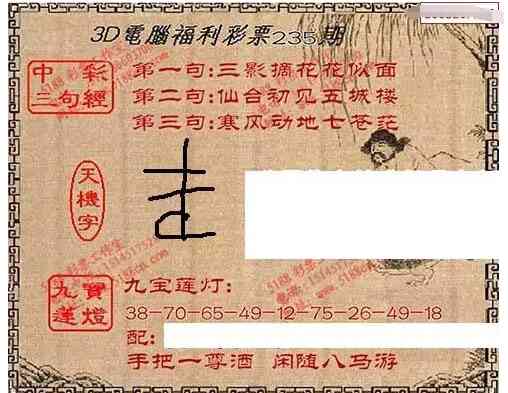 3D電腦福利彩票235期
中彩
三句經
第一句:三影摘花花似面
第二句:仙台初见五城楼
第三句:寒风动地七苍茫
天機字
九寶
蓮燈
九宝莲灯:
38-70-65-49-12-75-26-49-18
配:
手把一尊酒 闲随八马游